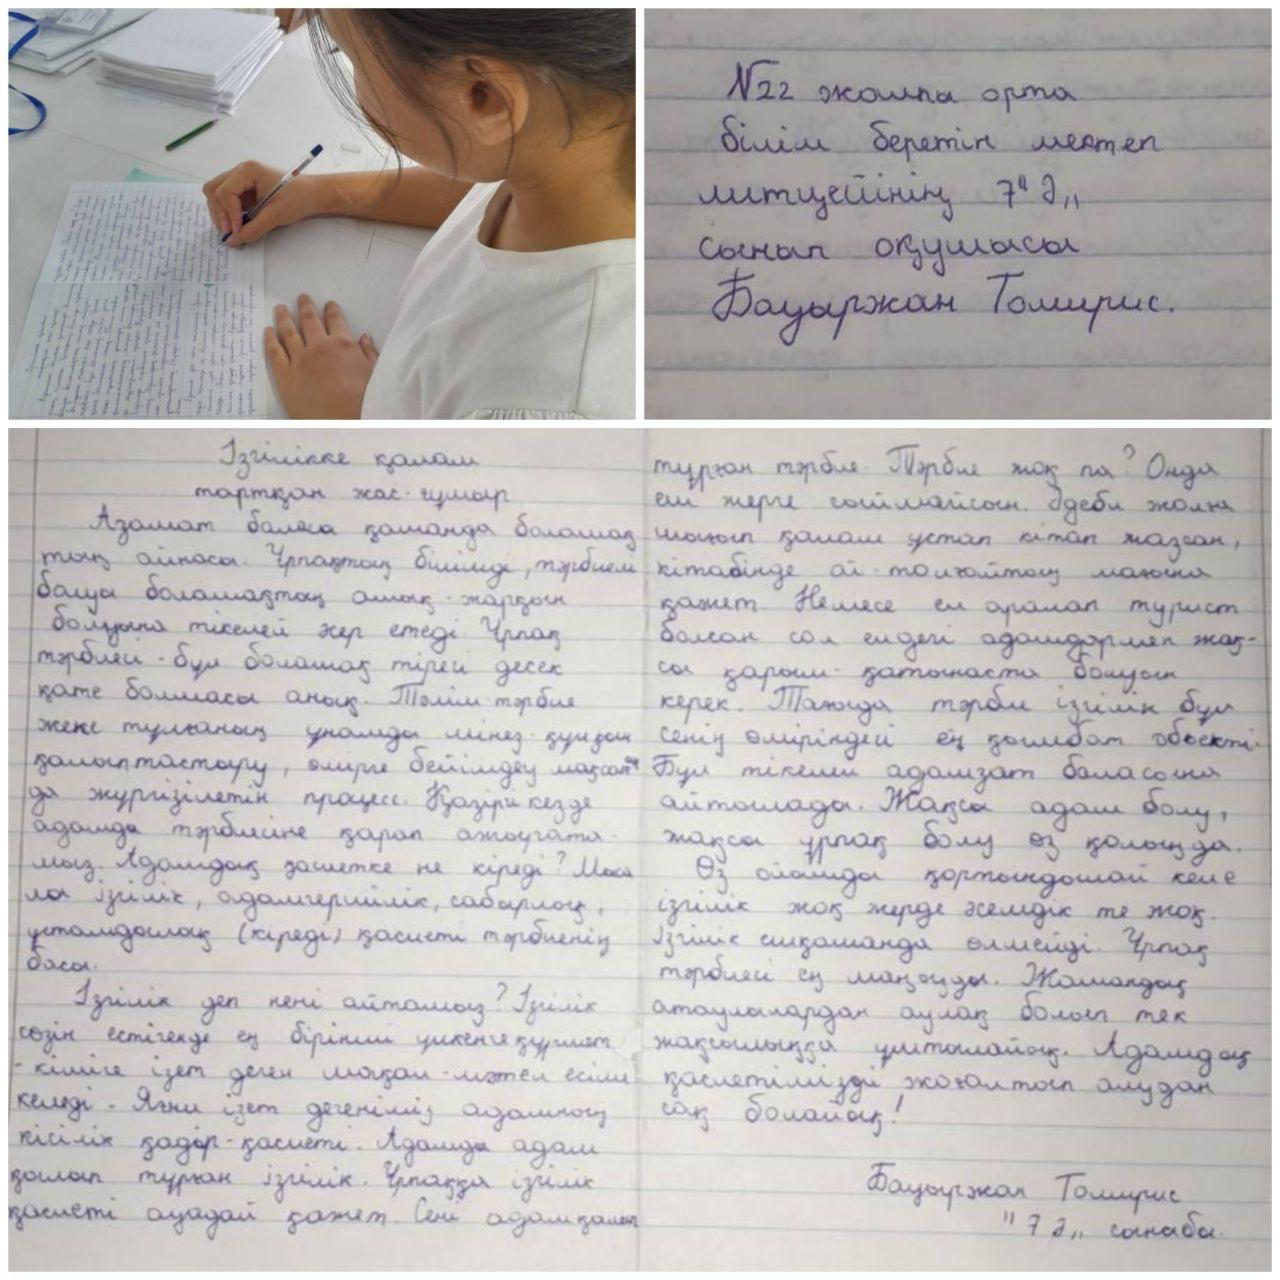 №22 жалпы орта
білім беретін мектеп
литцейінің 7"Ә"
сынып оқушысы
Бауыржан Томирис.
Ізгілікке қалам
тартқан жас-ғұмыр
Азамат баласы қашанда болашақ
тың айнасы. Ұрпақтың білімді, тәрбиелі
болуы болашақтың ашық-жарқын
болуына тікелей әсер етеді. Ұрпақ
тәрбиесі - бұл болашақ тірегі десек
қате болмасы анық. Тәлім-тәрбие
жеке тұлғаның ұнамды мінез-құлқын
қалыптастыру, өмірге бейімдеу мақсатын
да жүргізілетін процесс. Қазіргі кезде
адамды тәрбиесіне қарап ажырата-
мыз. Адамдық қасиетке не кіреді? Маса
ла ізгілік, адамгершілік, сабырлық,
ұстамдылық (кіреді) қасиеті тәрбиенің
басы.
Ізгілік деп нені айтамыз? Ізгілік
сөзін естігенде ең бірінші үлкенге құрмет
- кішіге ізет деген мақал-мәтел есіме
келеді. Яғни ізет дегеніміз адамның
кісілік қадір-қасиеті. Адамды адам
қылып тұрған ізгілік. Ұрпаққа ізгілік
қасиеті ауадай қажет. Сені адам қылып
тұрған тәрбие. Тәрбие жоқ па? Онда
еш жерге сыймайсың. Әдеби жолға
шығып қалам ұстап кітап жазсаң,
кітабіңде ой-толғайтың мағына
қажет. Немесе ел аралап турист
болсаң сол елдегі адамдармен жақ-
сы қарым-қатынаста болуың
керек. Тағыда тәрбие ізгілік бұл
сенің өміріңдегі ең қымбат обьекті.
Бұл тікелей адамзат баласына
айтылады. Жақсы адам болу,
жақсы ұрпақ болу өз қолыңда.
Өз ойымды қортындылай келе
ізгілік жоқ жерде әсемдік те жоқ.
Ізгілік ешқашанда өлмейді. Ұрпақ
тәрбиесі ең маңызды. Жамандық
атаулылардан аулақ болып тек
жақсылыққа ұмтылайық. Адамдық
қасиетімізді жоғалтып алудан
сақ болайық!
Бауыржан Томирис
"7 Ә" сыныбы.